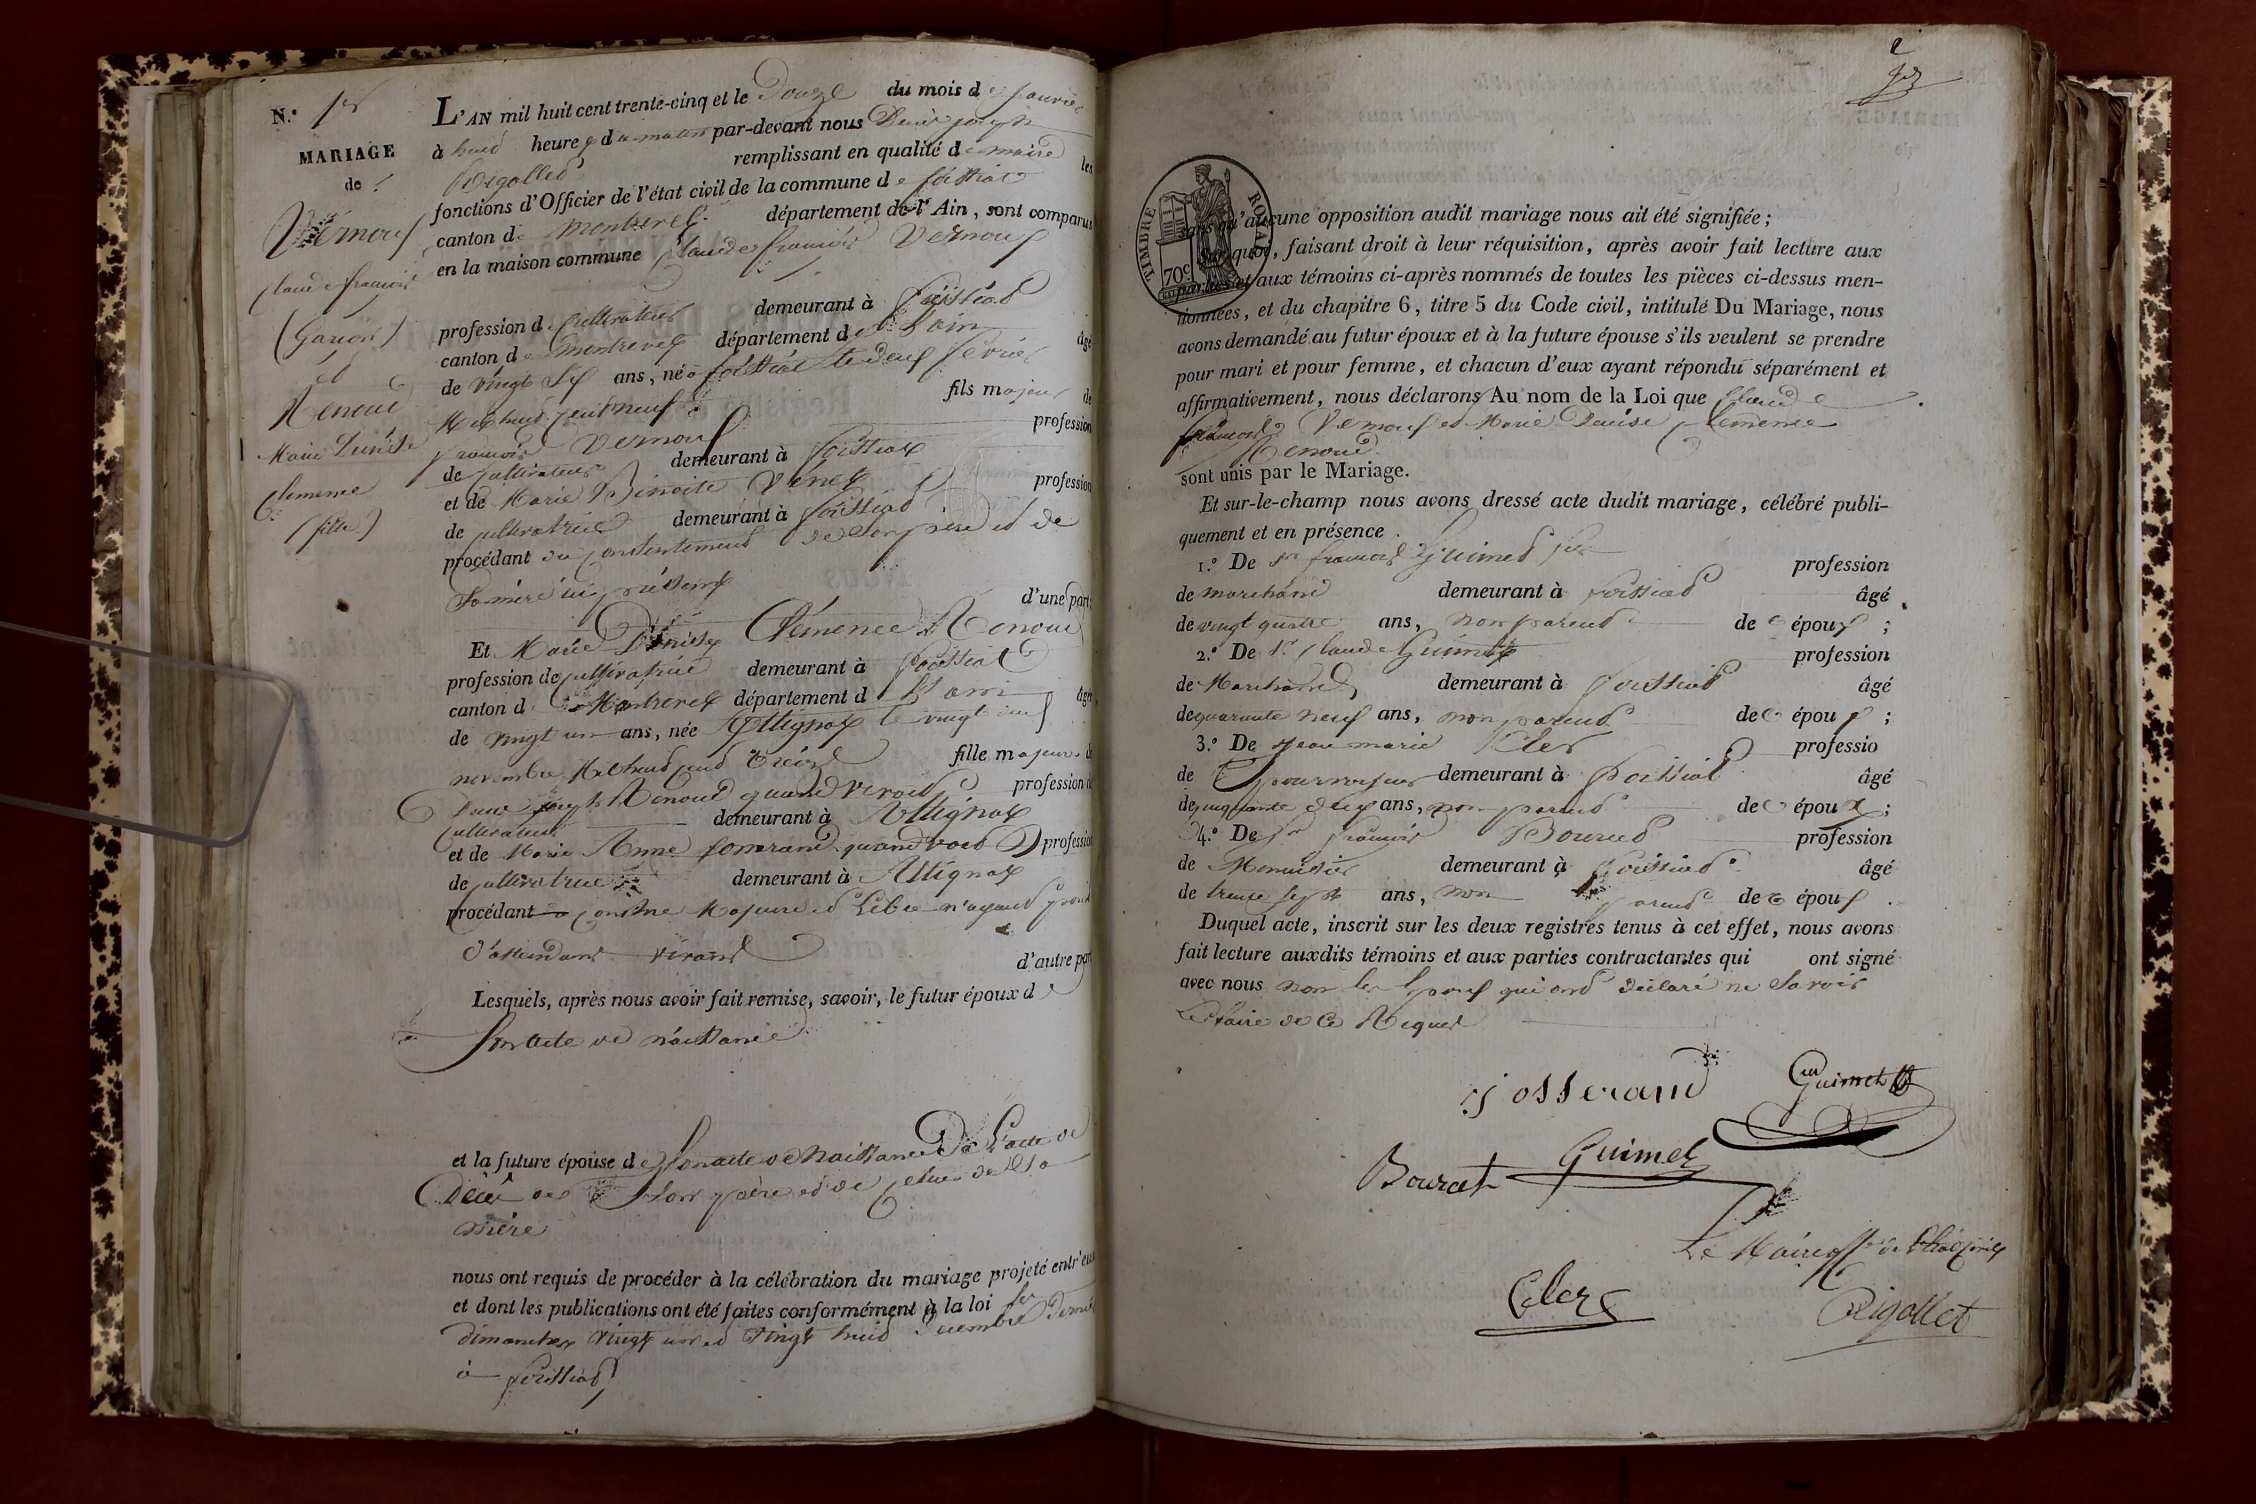 N.° 1er
MARIAGE
de
Vernoux
Claude françois
(Garçon)
et
Renoud
Marie Denise
Clemence
(fille)
L'AN mil huit cent trente-cinq et le Douze du mois de janvier
à huit heures du matin par-devant nous Denis joseph
Rigollet remplissant en qualité de maire les
fonctions d'Officier de l'état civil de la commune de foissiat
canton de montrevel département de l'Ain, sont comparus
en la maison commune Claude françois Vernoux
profession de Cultivateur demeurant à foissiat
canton de montrevel département de L'ain âgé
de vingt six ans, né à foissiat le deux fevrier
Mil huit cent neuf fils majeur de
françois Vernoux profession
de cultivateur demeurant à foissiat
et de Marie Benoite profession
de cultivatrice demeurant à foissiat
procédant du consentement de son père et de
Sa mère ici présents
d'une part;
Et Marie Denise Clémence Renoud
profession de cultivatrice demeurant à foissiat
canton de Montrevel département de L'ain âgée
de vingt un ans, née Attignat le vingt
novembre Mil huit cent treize fille majeure de
joseph Renoud quand vivait profession de
cultivateur demeurant à Attignat
et de Marie Anne quand vivait profession
de cultivatrice demeurant à Attignat
procédant comme Majeure et Libre n'ayant point
d'assendant vivant
d'autre part
Lesquels, après nous avoir fait remise, savoir, le futur époux de
Son acte de naissance
et la future épouse de Son acte de Naissance De L'acte de
Décè de Son père et de celui de Sa
mère
nous ont requis de procéder à la célébration du mariage projeté entr'eux
et dont les publications ont été faites conformément à la loi les
dimanches vingt un et vingt huit décembre dernier
à foissiat
2
TIMBRE ROYAL
70c
sans qu'aucune opposition audit mariage nous ait été signifiée;
Sur quoi, faisant droit à leur réquisition, après avoir fait lecture aux
parties et aux témoins ci-après nommés de toutes les pièces ci-dessus men-
tionnées, et du chapitre 6, titre 5 du Code civil, intitulé Du Mariage, nous
avons demandé au futur époux et à la future épouse s'ils veulent se prendre
pour mari et pour femme, et chacun d'eux ayant répondu séparément et
affirmativement, nous déclarons Au nom de la Loi que Claude
françois Vernoux et Marie Denise Clemence
Renoud
sont unis par le Mariage.
Et sur-le-champ nous avons dressé acte dudit mariage, célébré publi-
quement et en présence
1.° De Sr françois Guimet profession
de marchand demeurant à foissiat âgé
de vingt quatre ans, non parent des époux ;
2.° De Sr Claude Guimet profession
de Marchand demeurant à foissiat âgé
de quarante neuf ans, non parent des époux ;
3.° De jean marie Cler professio
de demeurant à foissiat âgé
de cinquante deux ans, non parent des époux ;
4.° De Sr françois Bourcet profession
de Menuisier demeurant à foissiat âgé
de trente sept ans, non parent des époux .
Duquel acte, inscrit sur les deux registres tenus à cet effet, nous avons
fait lecture auxdits témoins et aux parties contractantes qui ont signé
avec nous non les Epoux qui ont déclaré ne Savoir
Le faire de ce Requis
Josserand Guimet
Bourcet Guimet
Le Maire
Clerc
Rigollet